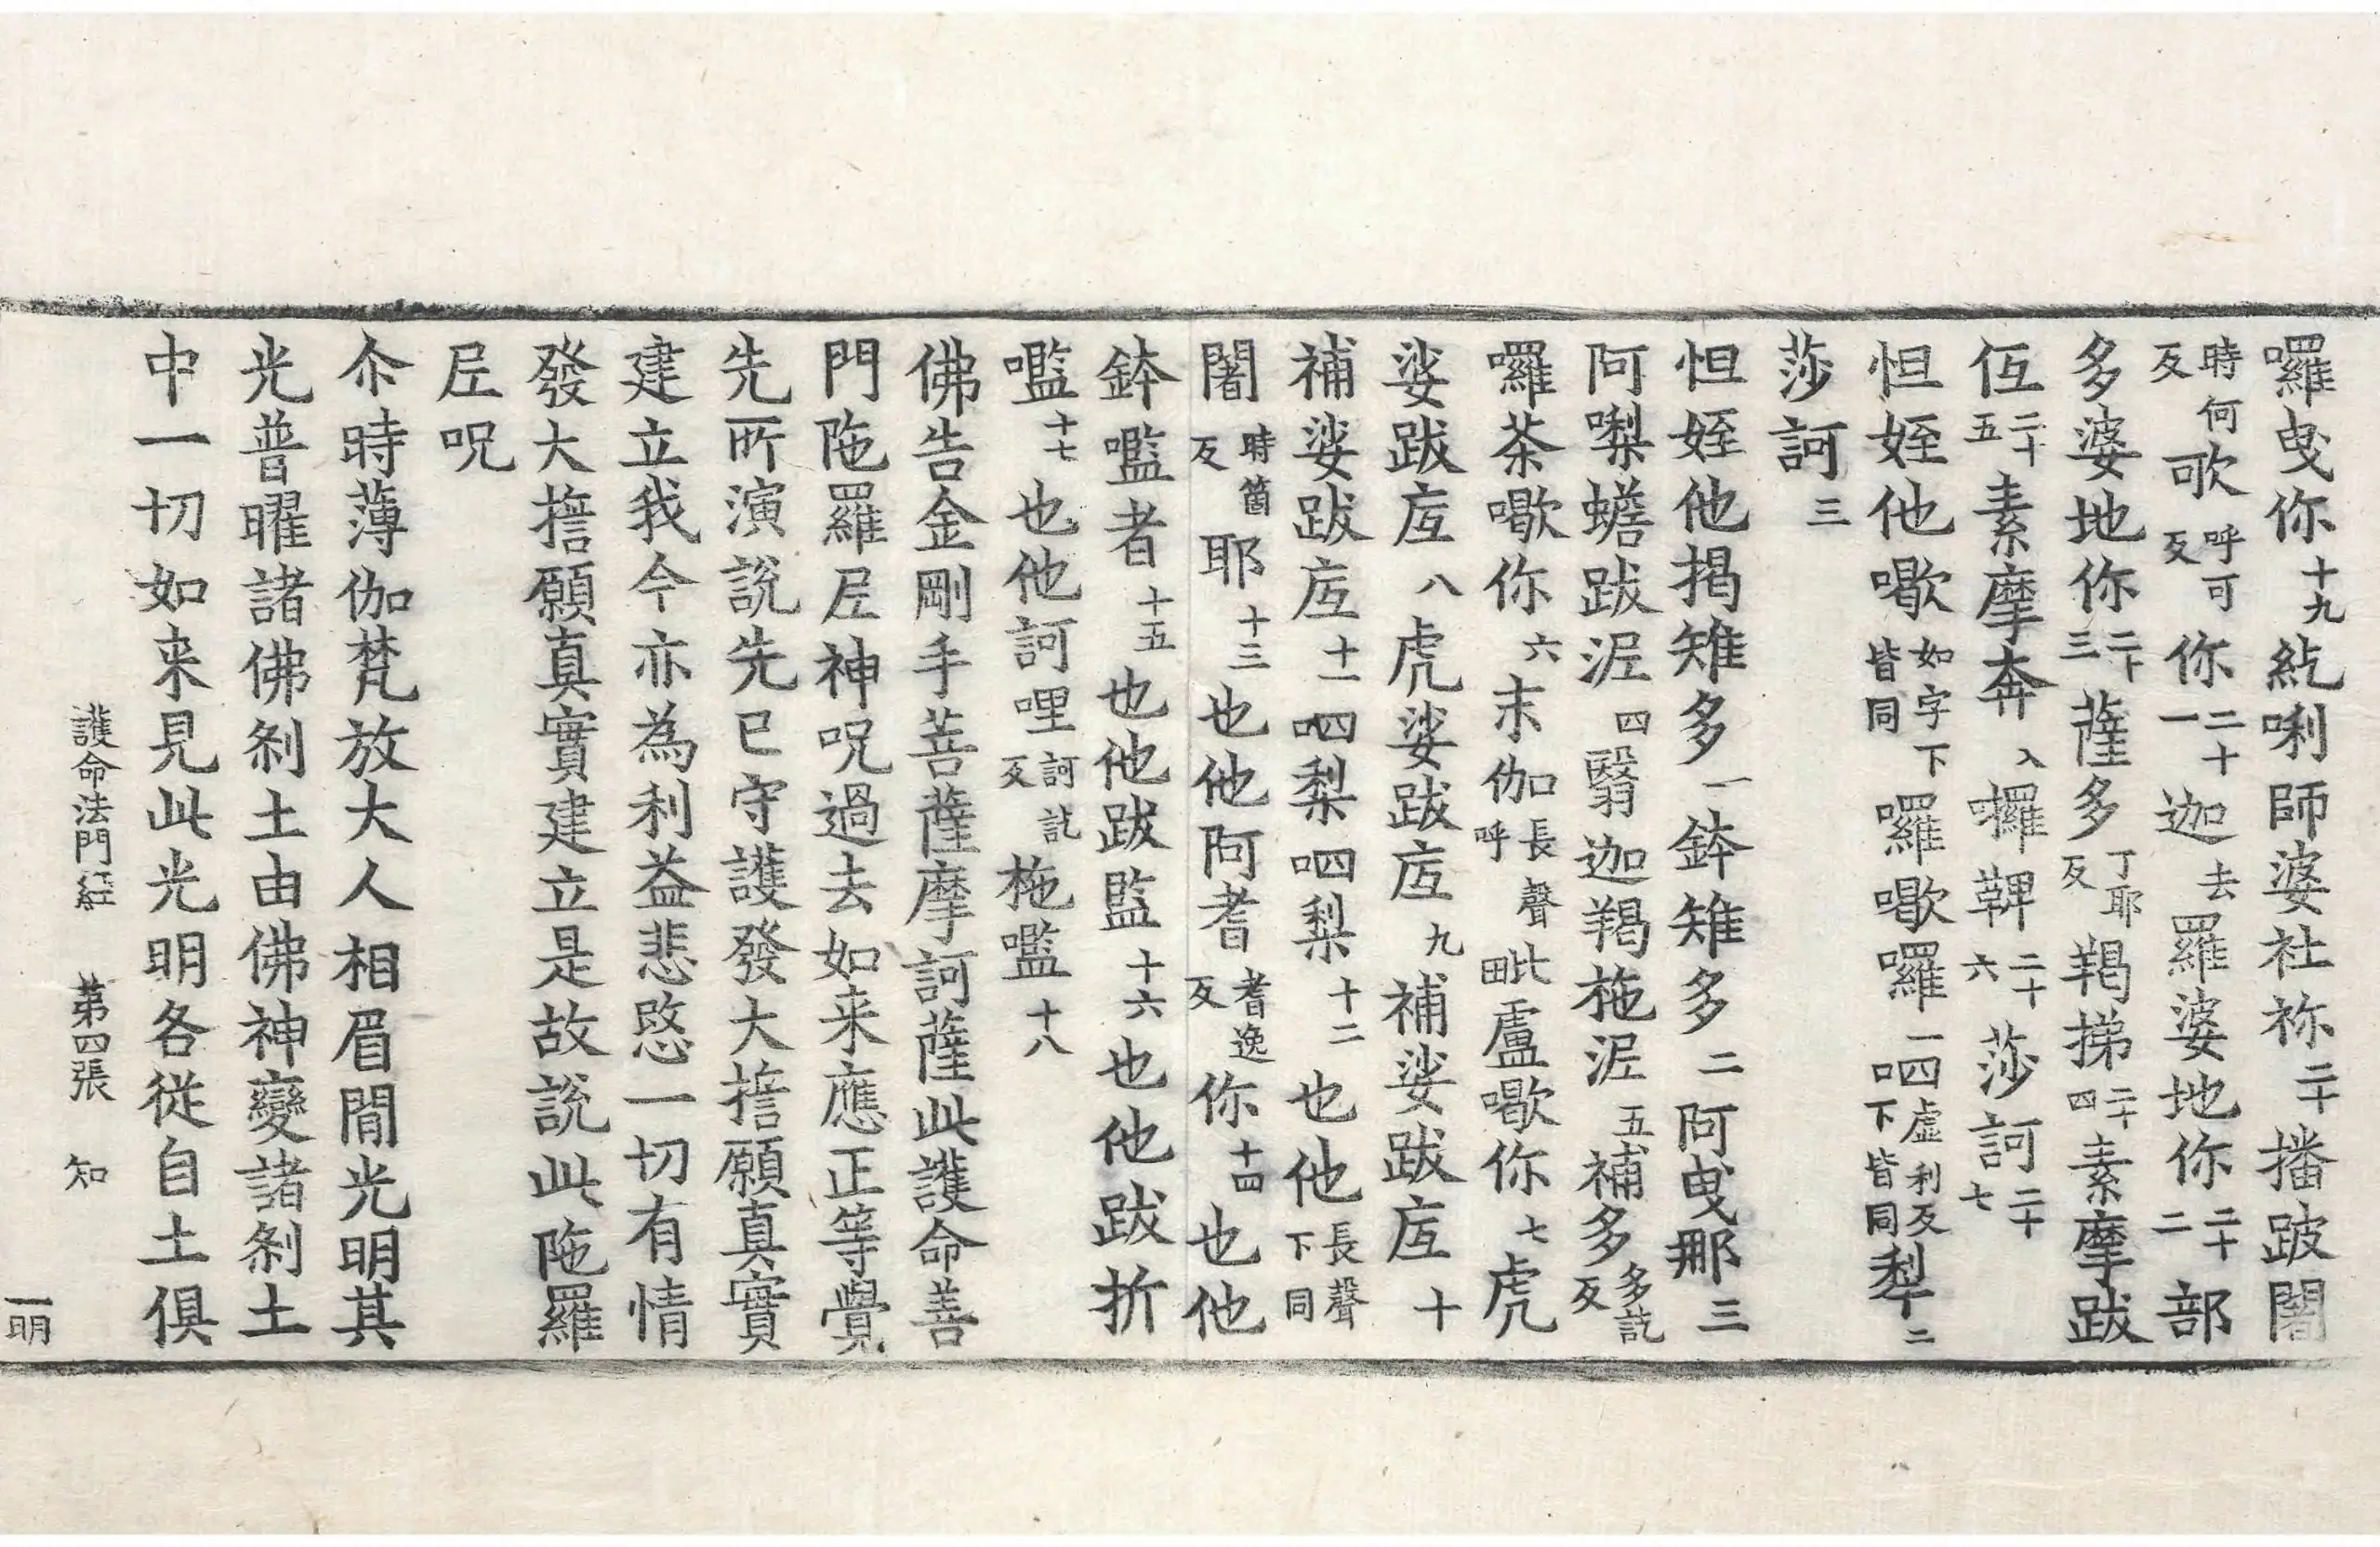 囉曳你十九紇唎師婆社祢二十播跛闍
時何反歌呼可反你二十一迦去羅婆地你二十二部
多婆地你二十三薩多丁耶反羯㨑二十四素摩跋
𠇾二十五素摩奔入㘓鞞二十六莎訶二十七
怛姪他歇如字下皆同囉歇囉一呬虛利反下皆同犁二
莎訶三
怛姪他揭雉多一鉢雉多二阿曳那三
阿㗚蟾跋泥四翳迦羯拖泥五補多多訖反
囉茶歇你六末伽長聲呼毗盧歇你七虎
娑跋底八虎娑跋底九補娑跋底十
補娑跋底十一呬梨呬梨十二也他長聲下同
闍時箇反耶十三也他阿耆耆逸反你十四也他
鉢㘕者十五也他跋監十六也他跋折
㘕十七也他訶哩訶訖反拖㘕十八
佛告金剛手菩薩摩訶薩此護命善
門陁羅尼神呪過去如来應正等覺
先所演說先已守護發大擔願真實
建立我今亦為利益悲愍一切有情
發大擔願真實建立是故說此陁羅
尼呪
尒時薄伽梵放大人相眉間光明其
光普曜諸佛刹土由佛神變諸刹土
中一切如来見此光明各從自土俱
護命法門經　第四張　知
一明